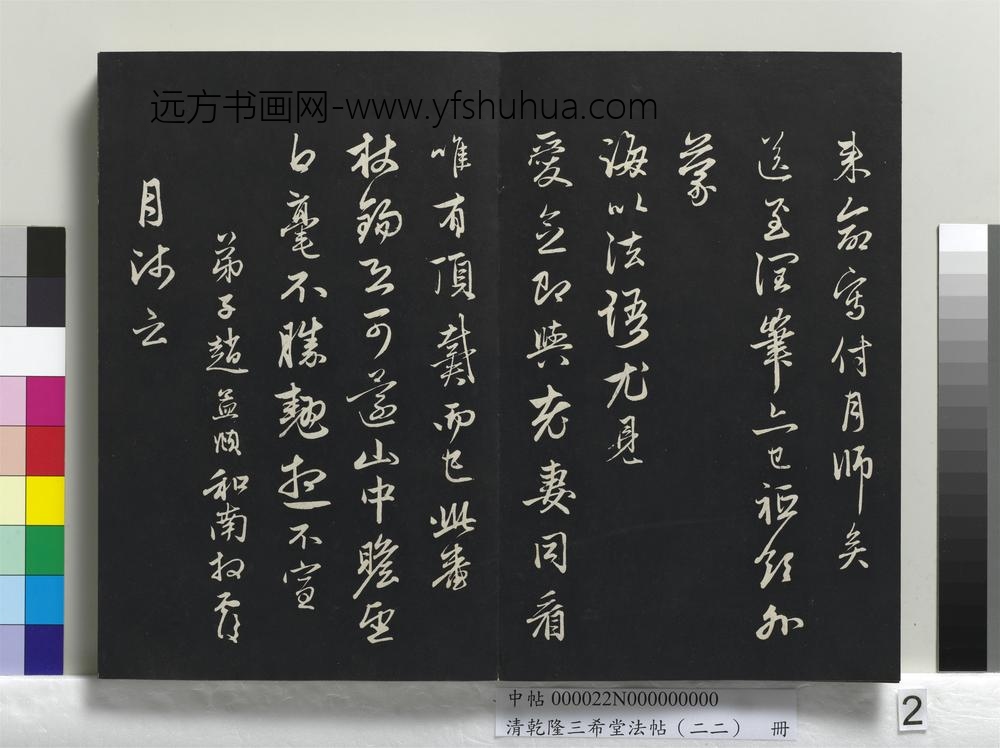 远方书画网-www.yfshuhua.com
來命寫付月師矣
送至潤筆亦已祗領外
蒙
誨以法語尤見
愛念即與老妻同看
唯有頂戴而已此番
杖錫可還山中瞻望
白毫不勝翹想不宣
弟子趙孟頫和南拜覆
月師云
中帖 000022N000000000
清乾隆三希堂法帖（二二） 冊
2